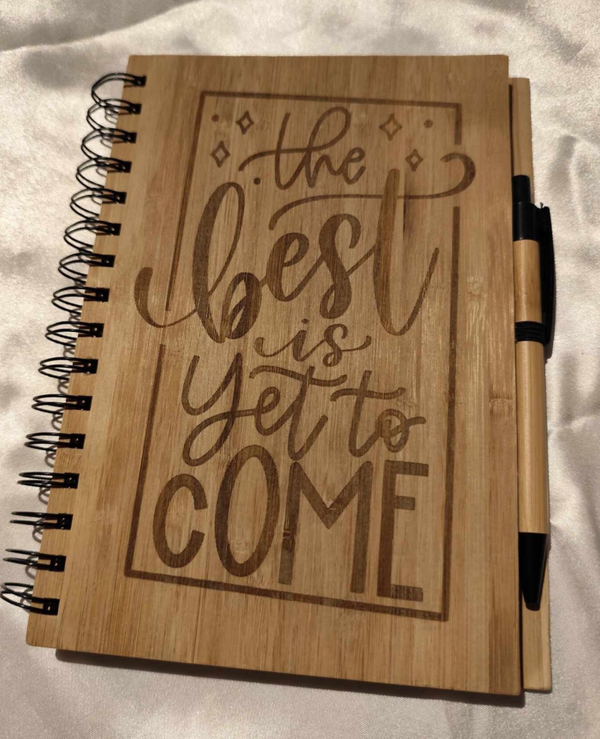 the
best
is
yet to
COME